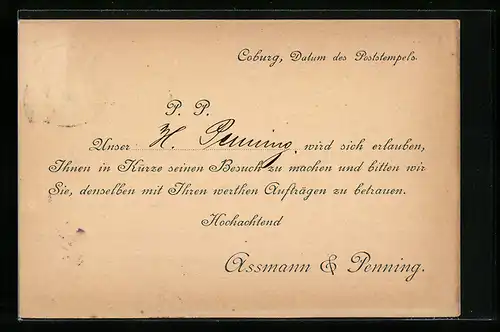 Coburg, Datum des Poststempels.
P. P.
Unser H. Penning, wird sich erlauben,
Ihnen in Kürze seinen Besuch zu machen und bitten wir
Sie, denselben mit Ihren werthen Aufträgen zu betrauen.
Hochachtend
Assmann & Penning.